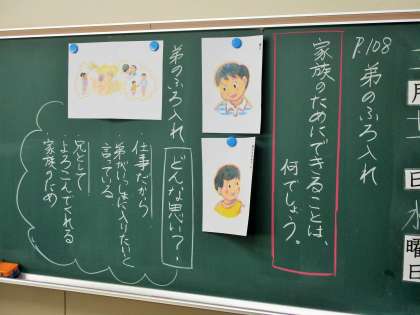 P.108
弟のふろ入れ
家族のためにできることは、
何でしょう。
弟のふろ入れ
どんな思い？
・仕事だから
・弟がいっしょに入りたいと
言っている
・兄として
よろこんでくれる
家族のため
月
十
日
水
曜
日